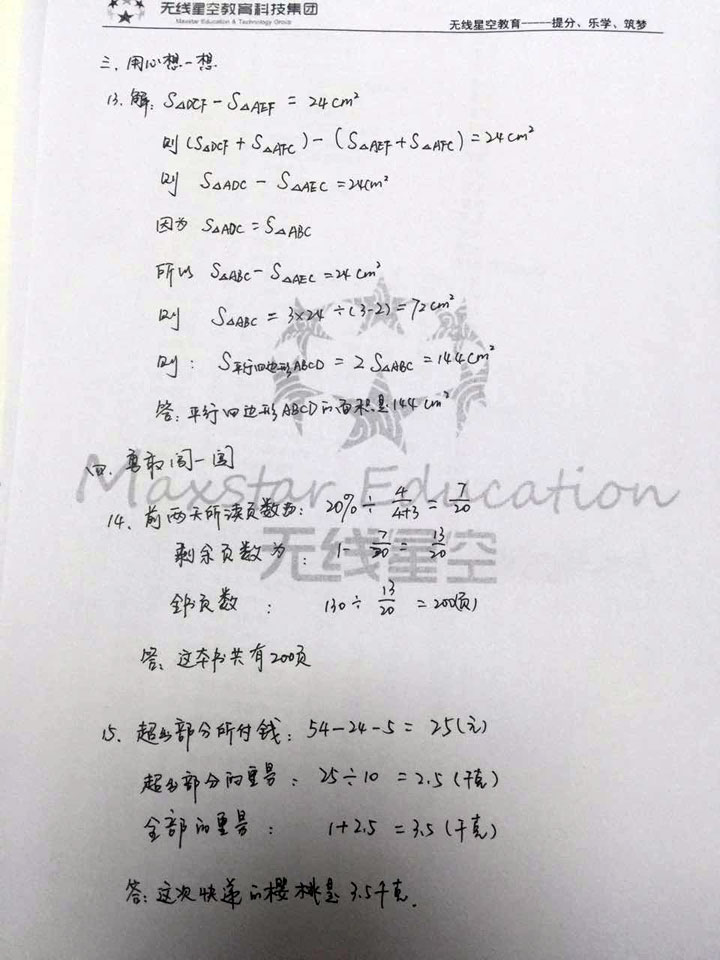 无线星空教育科技集团
Maxstar Education & Technology Group
无线星空教育-----提分、乐学、筑梦
三、用心想一想
13. 解: S△DCF - S△AEF = 24cm²
则 (S△DCF + S△AFC) - (S△AEF + S△AFC) = 24cm²
则 S△ADC - S△AEC = 24cm²
因为 S△ADC = S△ABC
所以 S△ABC - S△AEC = 24cm²
则 S△ABC = 3×24÷(3-2) = 72cm²
则: S平行四边形ABCD = 2S△ABC = 144cm²
答: 平行四边形ABCD的面积是144cm²
四. 勇敢闯一闯
Maxstar Education
14、前两天所读页数为: 20% ÷ 4/4+3 = 7/20
无线星空
剩余页数为: 1 - 7/20 = 13/20
全书页数: 130 ÷ 13/20 = 200(页)
答: 这本书共有200页
15. 超出部分所付钱: 54-24-5 = 25(元)
超出部分的重量: 25÷10 = 2.5(千克)
全部的重量: 1+2.5 = 3.5(千克)
答: 这次快递的樱桃是3.5千克.